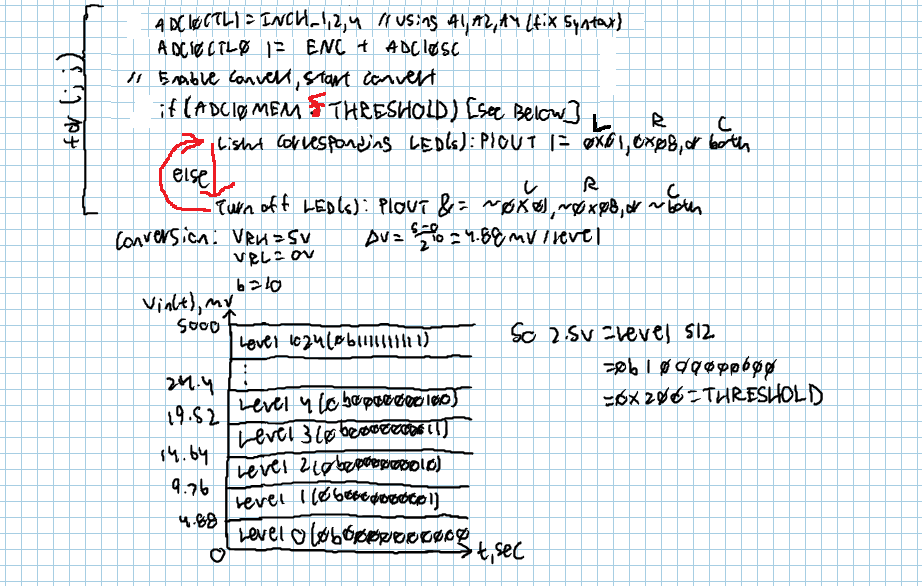 for(;;)
ADC10CTL1 = INCH_1,2,4 // using A1, A2, A4 (fix syntax)
ADC10CTL0 |= ENC + ADC10SC
// Enable convert, start convert
if (ADC10MEM THRESHOLD) [see Below]
L R C
Light corresponding LED(s): P1OUT |= 0x01, 0x08, or both
else
L R C
Turn off LED(s): P1OUT &= ~0x01, ~0x08, or ~both
Conversion: VRH = 5V ΔV = 5-0/2^10 = 4.88 mV/level
VRL = 0V
b = 10
Vin(t), mV
5000
Level 1024 (0b1111111111)
⋮
24.4
Level 4 (0b0000000100)
19.52
Level 3 (0b0000000011)
14.64
Level 2 (0b0000000010)
9.76
Level 1 (0b0000000001)
4.88
Level 0 (0b0000000000
0
t, sec
So 2.5V = Level 512
= 0b1000000000
= 0x200 = THRESHOLD